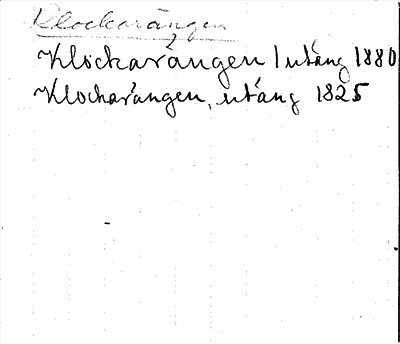 Klockarängen
Klockarängen / utäng 1880
Klockarängen, utäng 1825